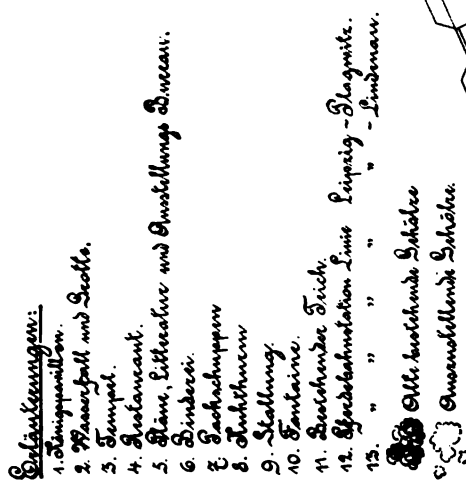 Erläuterungen:
1. Königspavillon.
2. Wasserfall und Grotte.
3. Tempel.
4. Restaurant.
5. Pläne, Litteratur und Ausstellungs Bureau.
6. Binderei.
7. Packschuppen
8. Lichtthurm
9. Stallung.
10. Fontaine.
11. Bestehender Teich.
12. Pferdebahnstation Linie Leipzig - Plagwitz.
13. " " " " - Lindenau.
Alte bestehende Gehölze
Anzustellende Gehölze.